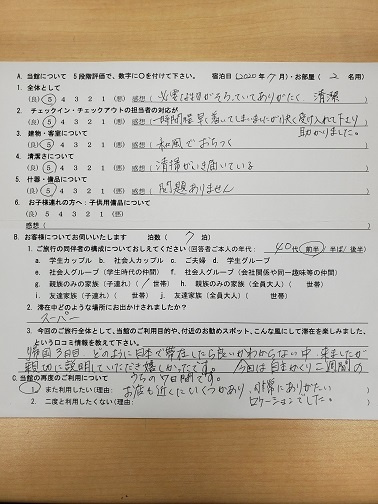 A. 当館について 5段階評価で、数字に○を付けて下さい。 宿泊日（2020年7月）・お部屋（2名用）
1. 全体として
（良）5 4 3 2 1（悪） 感想（必要な物がそろっていてありがたく 清潔）
2. チェックイン・チェックアウトの担当者の対応が
（良）5 4 3 2 1（悪） 感想（一時間程早く着いてしまいましたが快く受け入れて下さり 助かりました。）
3. 建物・客室について
（良）5 4 3 2 1（悪） 感想（和風でおちつく）
4. 清潔さについて
（良）5 4 3 2 1（悪） 感想（清掃がいき届いている）
5. 什器・備品について
（良）5 4 3 2 1（悪） 感想（問題ありません）
6. お子様連れの方へ：子供用備品について
（良）5 4 3 2 1（悪）
感想（ ）
B. お客様についてお伺いいたします 泊数（7）泊
1. ご旅行の同伴者の構成についておしえてください（回答者ご本人の年代：40代 前半／半ば／後半）
a. 学生カップル b. 社会人カップル c. ご夫婦 d. 学生グループ
e. 社会人グループ（学生時代の仲間） f. 社会人グループ（会社関係や同一趣味等の仲間）
g. 親族のみのご家族（子連れ）（1世帯） h. 親族のみのご家族（全員大人）（ 世帯）
i. 友達家族（子連れ）（ 世帯） j. 友達家族（全員大人）（ 世帯）
2. 滞在中どのような場所にお出かけされましたか？
スーパー
3. 今回のご旅行全体として、当館のご利用目的や、付近のお勧めスポット、こんな風にして滞在を楽しみました、
という口コミ情報を教えて下さい。
帰国3日目 どのように日本で滞在したら良いかわからない中、来ましたが
親切に説明していただき嬉しかったです。 今回は自主かくり二週間の
うちの7日間です。
C. 当館の再度のご利用について
1. また利用したい（理由 お店も近くにいくつかあり、非常にありがたい
ロケーションでした。）
2. 二度と利用したくない（理由